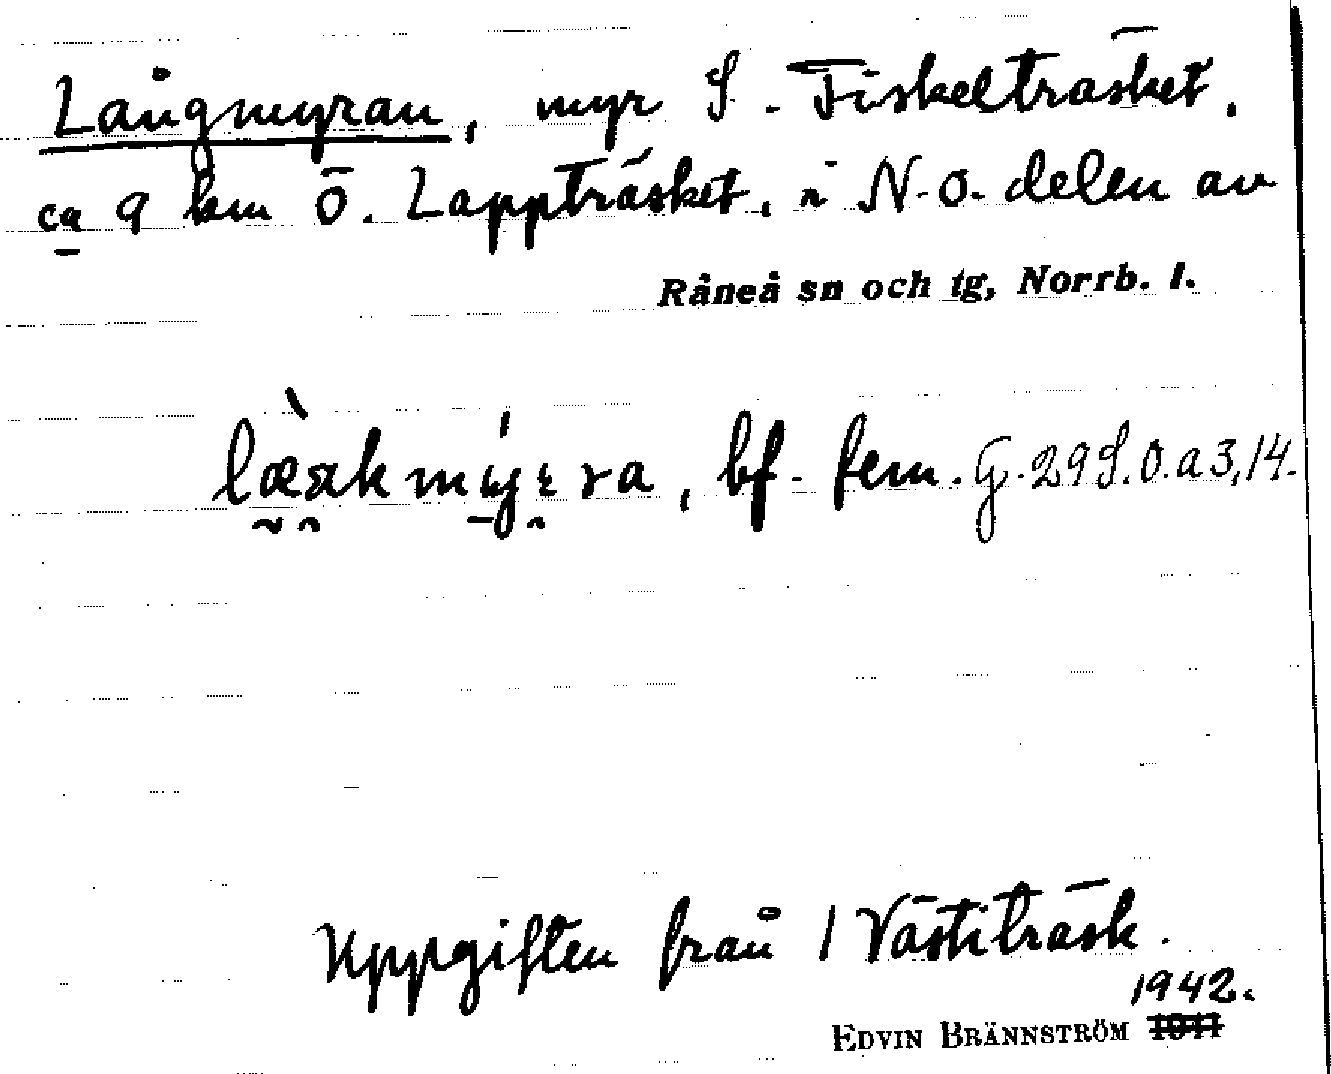 Långmyran, myr S. Fiskelträsket,
ca 9 km Ö. Lappträsket, i N.O. delen av
Råneå sn och tg, Norrb. l.
bf. fem. G. 29 S.O. a 3, 14.
Uppgiften från 1 Västiträsk.
1942.
EDVIN BRÄNNSTRÖM 1941